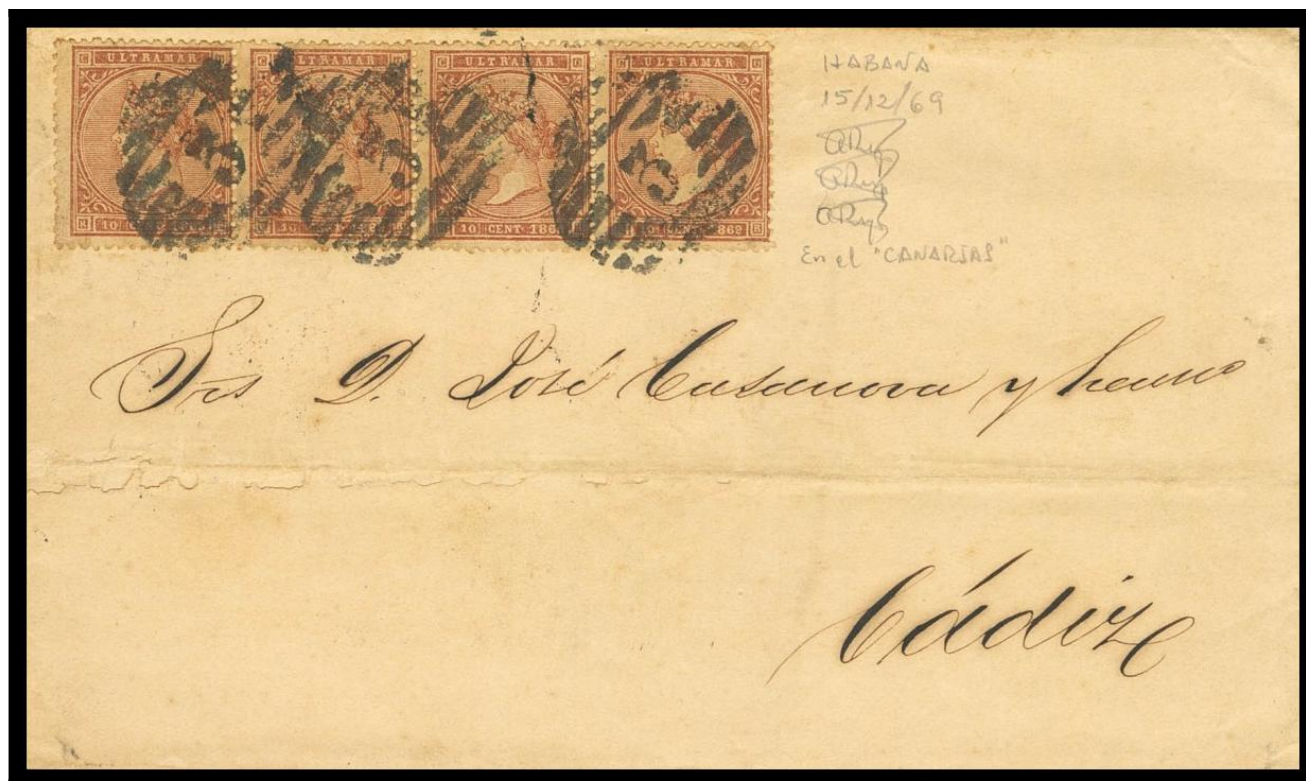 ULTRAMAR ULTRAMAR ULTRAMAR ULTRAMAR
10 CENT 10 CENT. 186 CENT 1869
HABANA
15/12/69
En el "CANARIAS"
Srs D. José Casanova y hermo
Cádiz